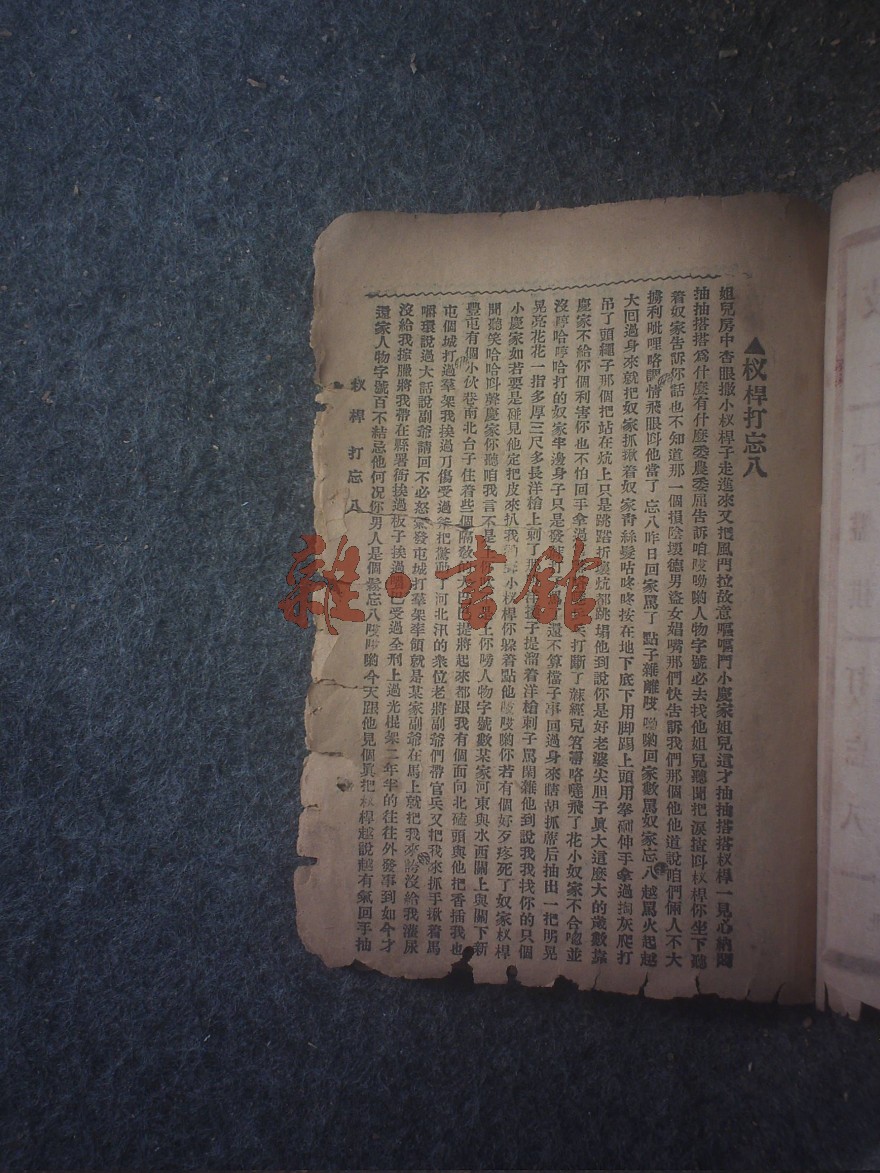 ▲杈桿打忘八
姐兒房中杏眼撒小杈桿子走進來又把風門拉故意嘔嘔鬥小慶家姐兒這才抽抽搭搭杈桿一見心納悶
抽抽搭搭為什麼有什麼委農委屈告訴咱哎喲喲人物字號必去找他姐兒聽聞把淚擦呌杈桿你坐下聽
着奴家告訴你話也不知道那一個損陰壞德男盜女娼嘴那們快告訴我們那個他他道說咱們倆人不大
利呲哩咯調情飛眼呌他當了忘八昨日回家罵了點子雜離哎喲喲回家數罵奴家忘八越罵火起越
大回過身來就把奴家抓揪着奴家青絲髮咕咚咚按在地下底下用脚踢上頭用拳砸伸手拿過掏灰爬打
吊了頭繩子那個把站在炕上只是跳踏折壞炕郁跳塌他到說你是好老婆尖胆子眞大這麼大的歲數靠
慶家不給你個利害你也不怕回手拿過打斷了蔴經兒笤帚咯嘵飛了花小奴家不合啽並
沒哼哈哼哈打的奴家半邊身子只是發還不算擋子事回過身來瞎胡抓席后抽出一把明晃
晃亮花花一指多厚三尺多長洋槍上刺了那子提溜着洋槍刺子罵閑雜他到說我我找你的只個
小慶家如若要是碰見他定把皮來扒我小杈桿你躱着點他哎哎喲你若有個好歹疼死了奴家杈桿
聞聽笑哈哈呌聲慶家你聽咱我言不是上你嘮人物字號數某家河東與水西關上與關下新
豐屯有個小伙巷南北台子住着些個隔敎提將起來都跟我有個面向北磕頭與他把香插我也
屯個城打過羣架我挨過刀傷受過斧把驚動了河北汛的衆位老將副爺們帶官兵又把我來抓手揪着馬
嚼環說過大話說副爺請回不必怒氣發屯城打羣架率領就是某家副爺在馬上就把我來誇沒給我灌尿
沒給我捰臘將我帶在縣署衙挨過板子挨過嘴巴受過全刑上過光棍架二年半的往往外發事到如今才
還家人物字號百不結忌他何況你男人是個鬆忘八哎哎喲今天跟他見個眞把杈桿越說越有氣回手抽
杈桿打忘八
雜·書館